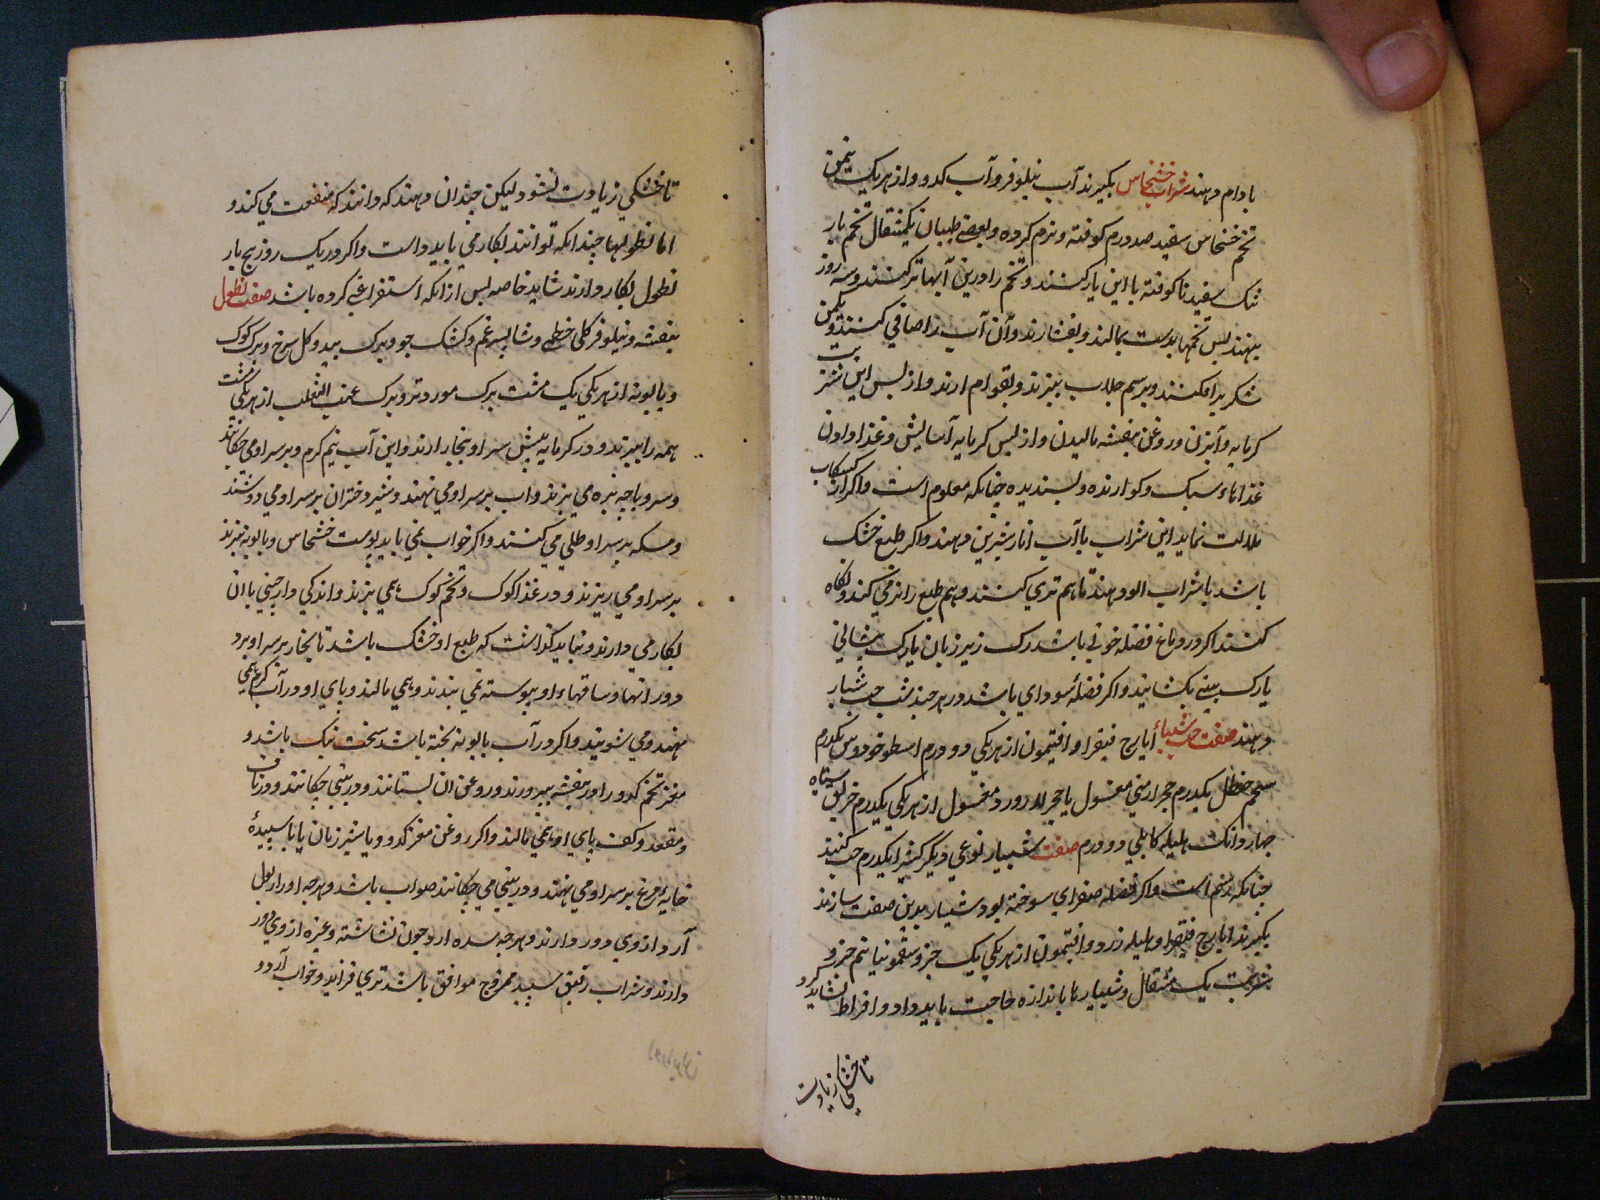 بادام دهند شراب خشخاش بگیرند آب نیلوفر و آب کدو و از هر یک نیمن
تخم خشخاش سفید صد درم کوفته و نرم کرده و بعضی طبیبان یکمثقال تخم بار
تنک سفید ناکوفته با این یار کنند و تخم را درین آبها تر کنند و سه روز
بنهند پس تخمها بدست بمالند و بفشارند و آن آب را صافی کنند و یکمن
شکر برافکنند و برسم جلاب بپزند و بقوام ارند و از پس این شربت
کرمابه و آبزن و روغن بنفشه مالیدن و از پس کرمابه آسایش و غذا دادن
غذاهاء سبک و کوارنده و پسندیده چنانکه معلوم است و اکر از کشکاب
ملالت نماید این شراب با آب انار شیرین دهند و اکر طبع خشک
باشد با شراب الو دهند تا هم تری کنند و هم طبع را نرم می کند و نکاه
کنند اکر در دماغ فضله خونی باشد رک زیر زبان یا رک پیشانی
یا رک بینی بکشایند و اکر فضلهٔ سودای باشد در هر چند شب حب شبیار
دهند صفت حب شبیار أیارج فیقرا و افتیمون از هر یکی دو درم اسطوخودوس یکدرم
شحم حنظل یکدرم حجر ارمنی مغسول یا حجر لاژورد مغسول از هر یکی یکدرم خربق سیاه
چهار دانک هلیله کابلی دو درم صفت شبیار نوعی دیکر کثیرا یکدرم حب کنند
چنانکه رسم است و اکر فضله صفرای سوخته بود شبیار بدین صفت سازند
بکیرند ایارج فیقرا و هلیله زرد و افتیمون از هر یکی یک جزو سقمونیا نیم جزو
شربت یک مثقال و شبیارها باندازه حاجت باید داد و افراط نشاید کرد
تا خشکی زیادت
تا خشکی زیادت نشود لیکن چندان دهند که دانند که منفعت می کند و
اما نطولها چندانکه توانند بکار می باید داشت و اکر در یک روز پنج بار
نطول بکار دارند شاید خاصه پس از انکه استفراغی کرده باشد صفت نطول
بنفشه و نیلوفر کل خطمی و شاهسپرغم و کشک جو و برک بید و کل سرخ و برک کوک
و بابونه از هر یکی یک مشت برک مورد تر و برک عنب الثعلب از هر یکی مشت
همه را بپزند و در کرمابه پیش سر او بخار ارند و این آب نیم کرم بر سر او می چکانند
و سر و پاچه بره می پزند و اب بر سر او می نهند و شیر دختران بر سر او می دوشند
و مسکه بر سر او طلی می کنند و اکر خواب نمی یابد پوست خشخاش و بابونه بپزند
بر سر او می ریزند و در غذا کوک و تخم کوک همی پزند و اندکی دارچینی با ان
بکار می دارند و نباید کذاشت که طبع او خشک باشد تا بخار بر سر او برد
و رانها و ساقهاء او پیوسته می بندند و همی مالند و پای او در آب کرم همی
نهند و می شویند و اکر در آب بابونه پخته باشد سخت نیک باشد و
مغز تخم کدو را در بنفشه بپرورند و روغن ان بستانند و در بینی چکانند و در ناف
و مقعد و کف پای او همی مالند و اکر روغن مغز کدو و یا شیر زنان یا با سپیدهٔ
خایهٔ مرغ بر سر او می نهند و در بینی می چکانند صواب باشد و هر چه ادرار بول
آرد از وی دور دارند و هر چه سده ارد چون نشاسته و غیره از وی دور
دارند و شراب رقیق سپید ممزوج موافق باشد تری فزاید و خواب آرد و